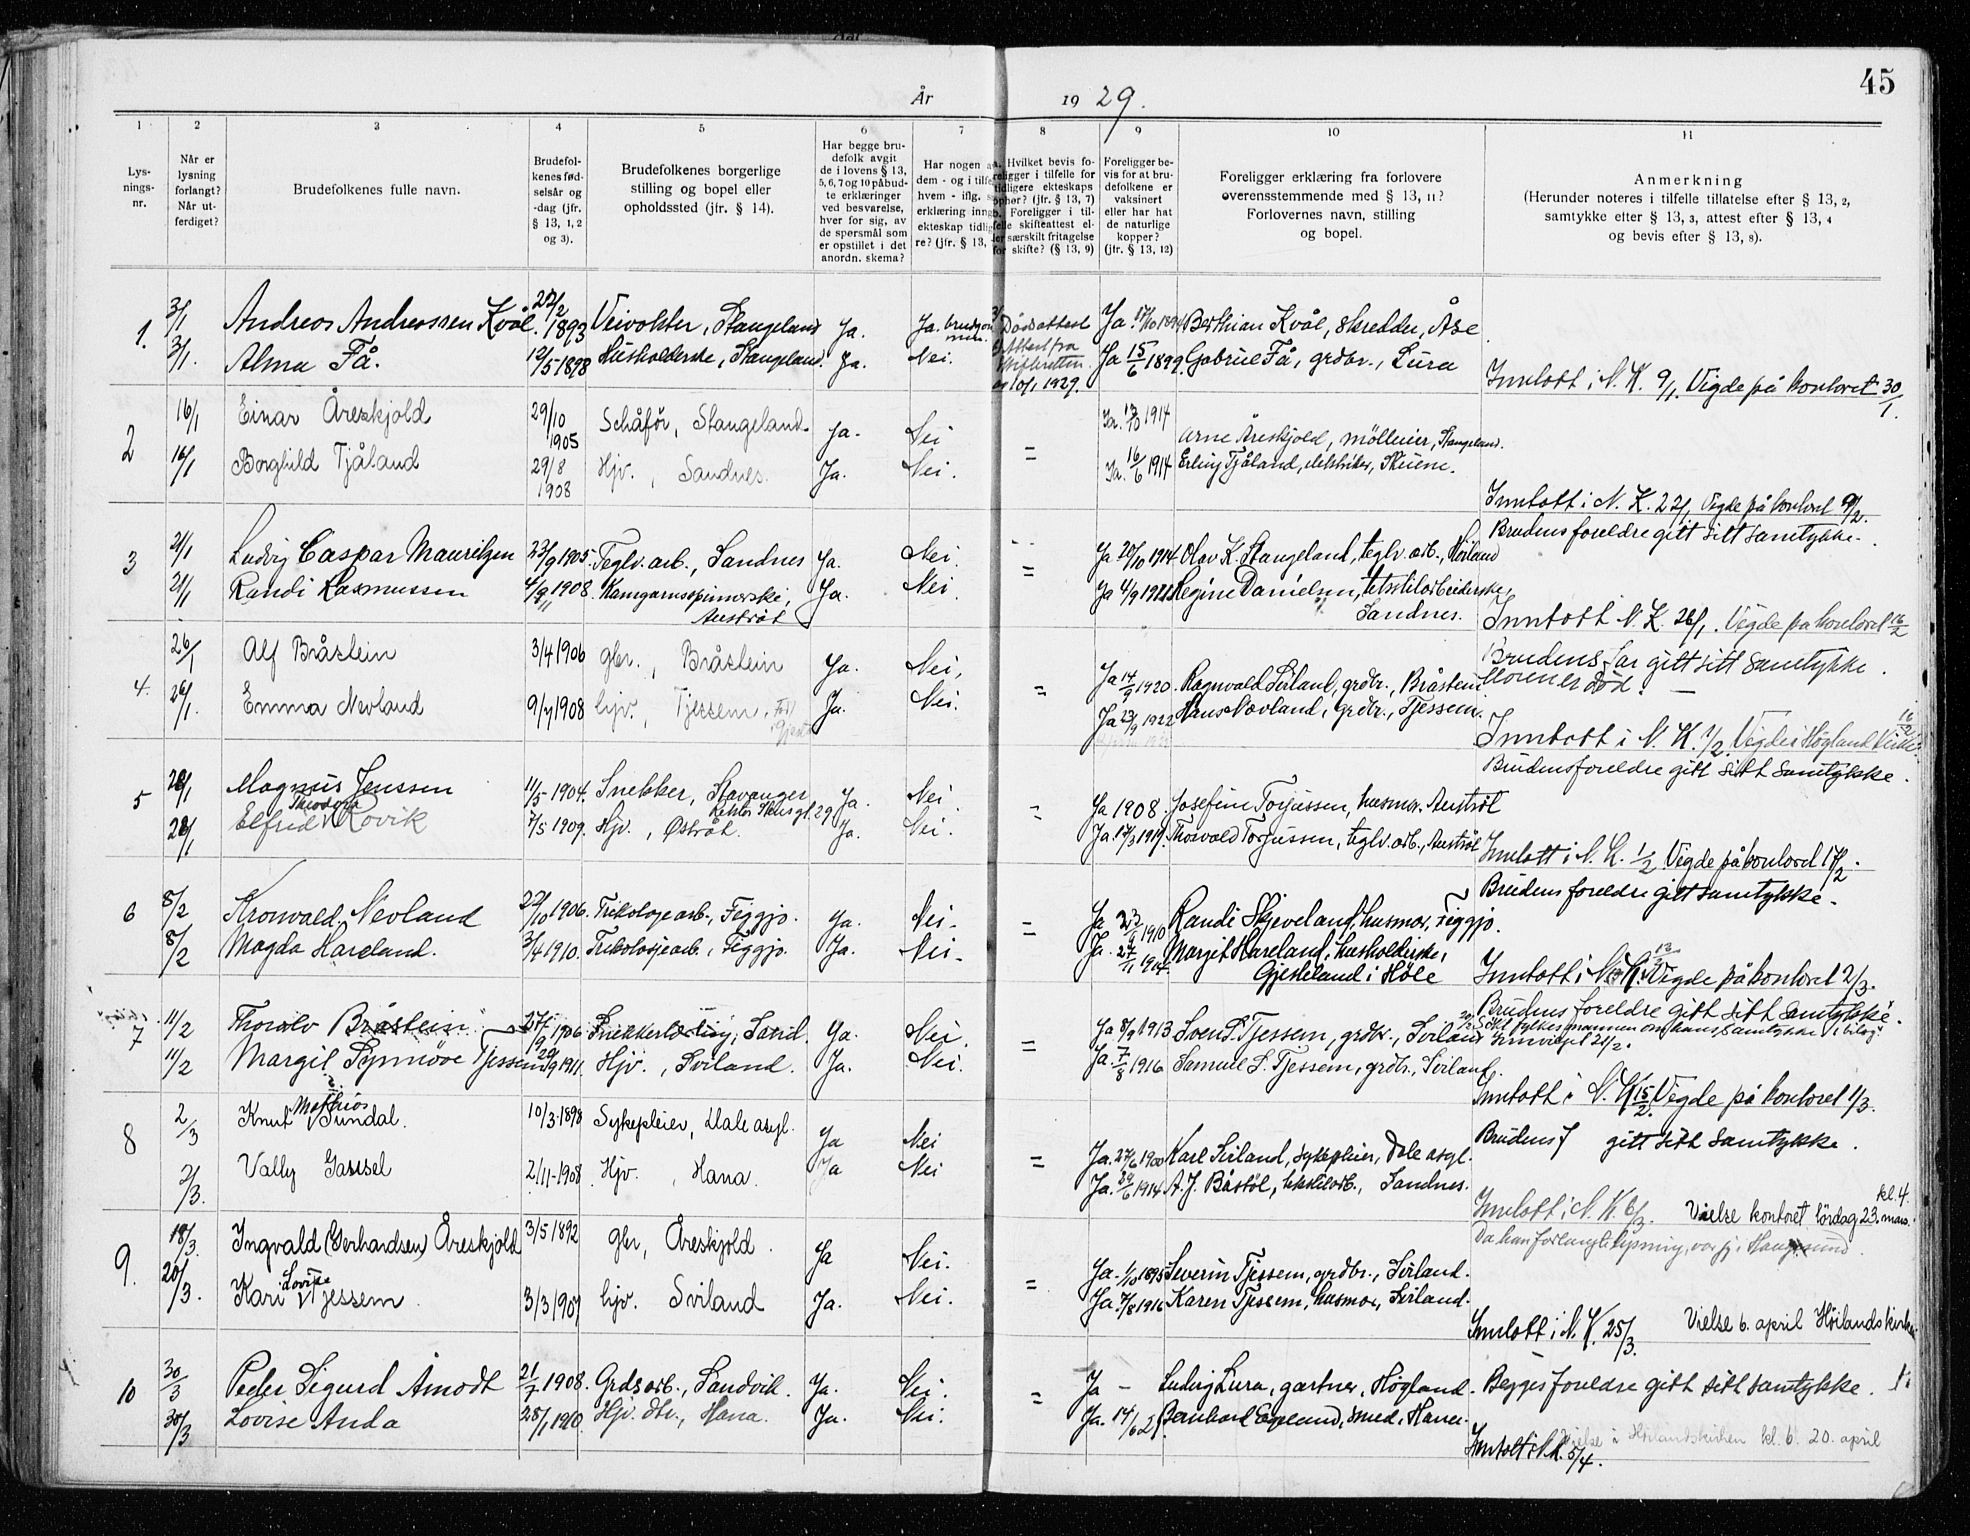 45
År 1929.
1 2 3 4 5 6 7 8 9 10 11
Lysningsnr.
Når er lysning forlangt? Når utferdiget?
Brudefolkenes fulle navn.
Brudefolkenes fødselsår og -dag (jfr. § 13, 1, 2 og 3).
Brudefolkenes borgerlige stilling og bopel eller opholdssted (jfr. § 14).
Har begge brudefolk avgit de i lovens § 13, 5, 6, 7 og 10 påbudte erklæringer ved besvarelse, hver for sig, av de spørsmål som er opstillet i det anordn. skema?
Har nogen a dem - og i tilfe hvem - iflg. s erklæring inng ekteskap tidlig re? (jfr. § 13,
Hvilket bevis foreligger i tilfelle for tidligere ekteskaps opphør? (jfr. § 13, 7) Foreligger i tilfelle skifteattest eller særskilt fritagelse for skifte? (§ 13, 9)
Foreligger bevis for at brudefolkene er vaksinert eller har hat de naturlige kopper? (jfr. § 13, 12)
Foreligger erklæring fra forlovere overensstemmende med § 13, 11? Forlovernes navn, stilling og bopel.
Anmerkning (Herunder noteres i tilfelle tillatelse efter § 13, 2, samtykke efter § 13, 3, attest efter § 13, 4 og bevis efter § 13, 8).
1. 3/1 Andreas Andreassen Kvål. 22/2 1893 Veivokter, Stangeland Ja. Ja. brudgommen. Dødsattest Ja. 1894 Berthian Kvål, skredder, Åse
3/1. Alma Få. 12/5-1898 Husholderske, Stangeland. Ja. Nei. Attest fra skifteretten 10/1 1929. Ja 15/6 1899. Gabriel Få, grdbr., Lura
Inntatt i N. K. 9/1. Vigde på kontoret 30/1.
2 16/1 Einar Åreskjold 29/10 1905 Schåfør, Stangeland. Ja. Nei Ja. 13/10 1914 Arne Åreskjold, mölleier, Stangeland.
16/1 Borghild Tjåland 29/8 1908 Hjv., Sandnes. Ja. Nei. = Ja. 16/6 1914 Erling Tjåland, elektriker, Skiene.
Inntatt i N. K. 22/1 Vigde på kontoret 9/2.
Brudens foreldre gitt sitt samtykke.
3 21/1 Ludvig Caspar Mauritzen 23/9 1905. Teglv. arb., Sandnes Ja. Nei. Ja 20/10 1914 Olav K. Stangeland, teglv. arb., Høiland
21/1 Randi Rasmussen 1908. Kamgarnsspinnerske, Austråt Ja. Nei. = Ja 4/9 Regine Danielsen, Sandnes.
Inntatt N. K. 26/1. Vigde på kontoret 16/2
Brudens far gitt sitt samtykke.
Moren er død. —
4. 26/1 Alf Bråstein 3/4 1906 gbr., Bråstein Ja. Nei, Ja 14/9 1920. Ragnvald Sviland, grdbr., Bråstein
26/1. Emma Nevland 9/7 1908 hjv., Tjessem. Ja. Nei. = Ja 23/9 1922 Hans Nævland, grdbr., Tjessem.
Inntatt i N. K. 1/2. Vigde i Högland Kirke 16/2.
Brudens foreldre gitt sitt samtykke.
5 28/1 Magnus Jenssen 11/5-1904. Snekker, Stavanger Ja. Nei. = Ja 1908. Josefine Torjussen, husmor, Austråt
28/1 Elfrid Theodora Rovik 7/5 1909. Hjv., Østråt. Ja. Nei. Ja. 17/3 1919. Thorvald Torjussen, teglv. arb., Austråt
Inntatt i N. K. 1/2 Vigde på kontoret 17/2.
Brudens foreldre gitt samtykke.
6 8/2 Kronvald Nevland 22/10 1906. Trikotagearb., Figgjo. Ja. Nei. = Ja 1910 Randi Skjeveland, husmor, Figgjo.
8/2 Magda Hareland. 3/4 1910. Trikotasjearb., Figgjo. Ja. Nei. Ja. 27/11 1914. Margit Hareland, husholderske, Gjesteland i Höle
Inntatt i N. K. 13/2 Vigde på kontoret 2/3.
Brudens foreldre gitt sitt samtykke.
7 11/2 Thorolv Bråstein 27/9 1906 Snekkerlærling, Sand. Ja. Nei. = Ja 8/9 1913 Sven S. Tjessem, grdbr., Sviland
11/2 Margit Synnöve Tjessem 29/9 1911. Hjv., Sviland. Ja. Nei. Ja. 7/8 1916 Samuel S. Tjessem, grdbr., Sviland.
Inntatt i N. K. 15/2. Vigde på kontoret 1/3.
8 2/3 Knut Mathias Sundal. 10/3-1898 Sykepleier, Dale asyl. Ja Nei = Ja. 27/6 1900 Karl Sviland, sykepleier, Dale asyl.
Brudens f gitt sitt samtykke.
2/3. Vally Gassel 2/11-1908. Hjv., Hana. Ja Nei Ja. 30/6 1914 A. J. Båstöl, tekstilarb., Sandnes.
Inntatt i N. K. 6/3. Vielse kontoret lördag 23. mars. kl. 4.
Da han forlangte lysning, var fj. i Haugesund.
9. 18/3. Ingvald (Gerhardsen) Åreskjold 3/5 1892 gbr, Åreskjold. Ja Nei. = Ja. 1/10 1895 Severin Tjessem, grdbr., Sviland.
20/3. Kari Lovise Tjessem. 3/3 1907 hjv. Sviland Ja. Nei. Ja. 7/8 1916 Karen Tjessem, husmor, Sviland.
Inntatt i N. K. 25/3. Vielse 6. april Höilandskirke
10 30/3 Peder Sigurd Åmodt 21/7 1908. Grdsarb., Sandvik. Ja. Nei. = Ja — Ludvig Lura, gartner, Högland. Begges foreldre gitt sitt samtykke.
30/3 Lovise Anda 28/1 1910. Hjv. dtr., Hana. Ja. Nei. Ja. 14/6 21. Bernhard Espeland, smed, Hana.
Inntatt i N. K. 5/4. Vielse i Höilandskirken kl. 6. 20. april